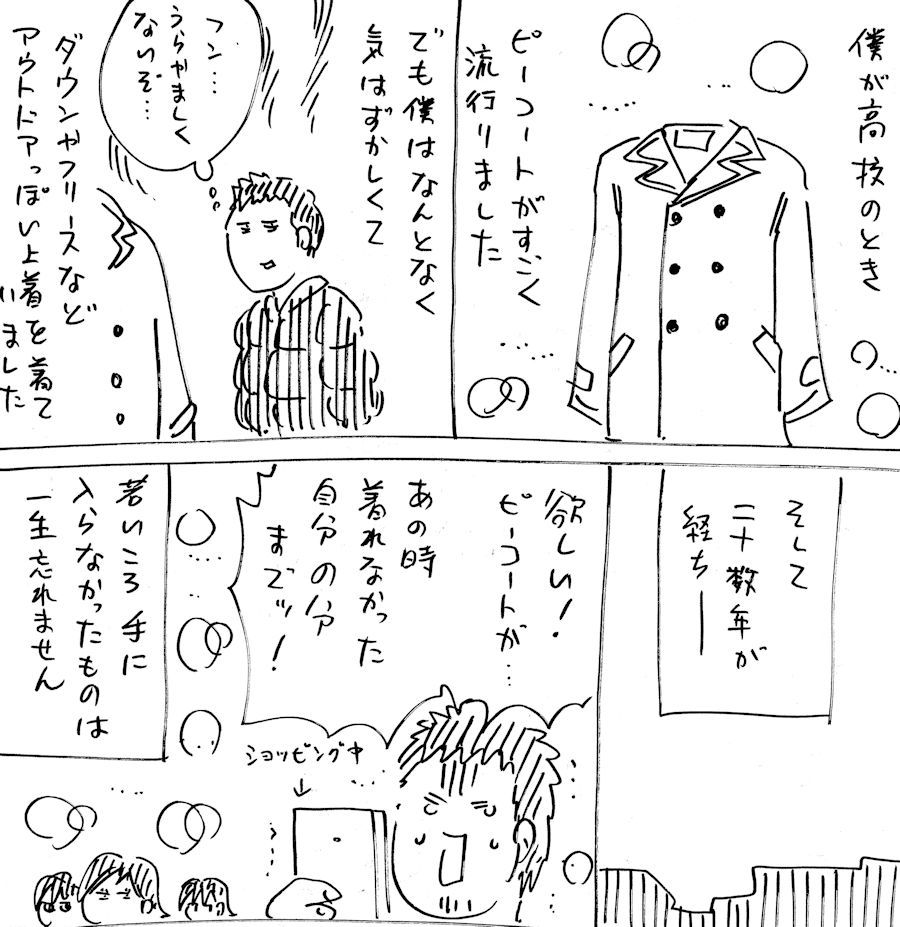 僕が高校のとき
ピーコートがすごく
流行りました
でも僕はなんとなく
気はずかしくて
フン…
うらやましく
ないぞ…
ダウンやフリースなど
アウトドアっぽい上着を着て
いました
そして
二十数年が
経ち――
欲しい!
ピーコートが…
あの時
着れなかった
自分の分
までッ!
ショッピング中
若いころ手に
入らなかったものは
一生忘れません